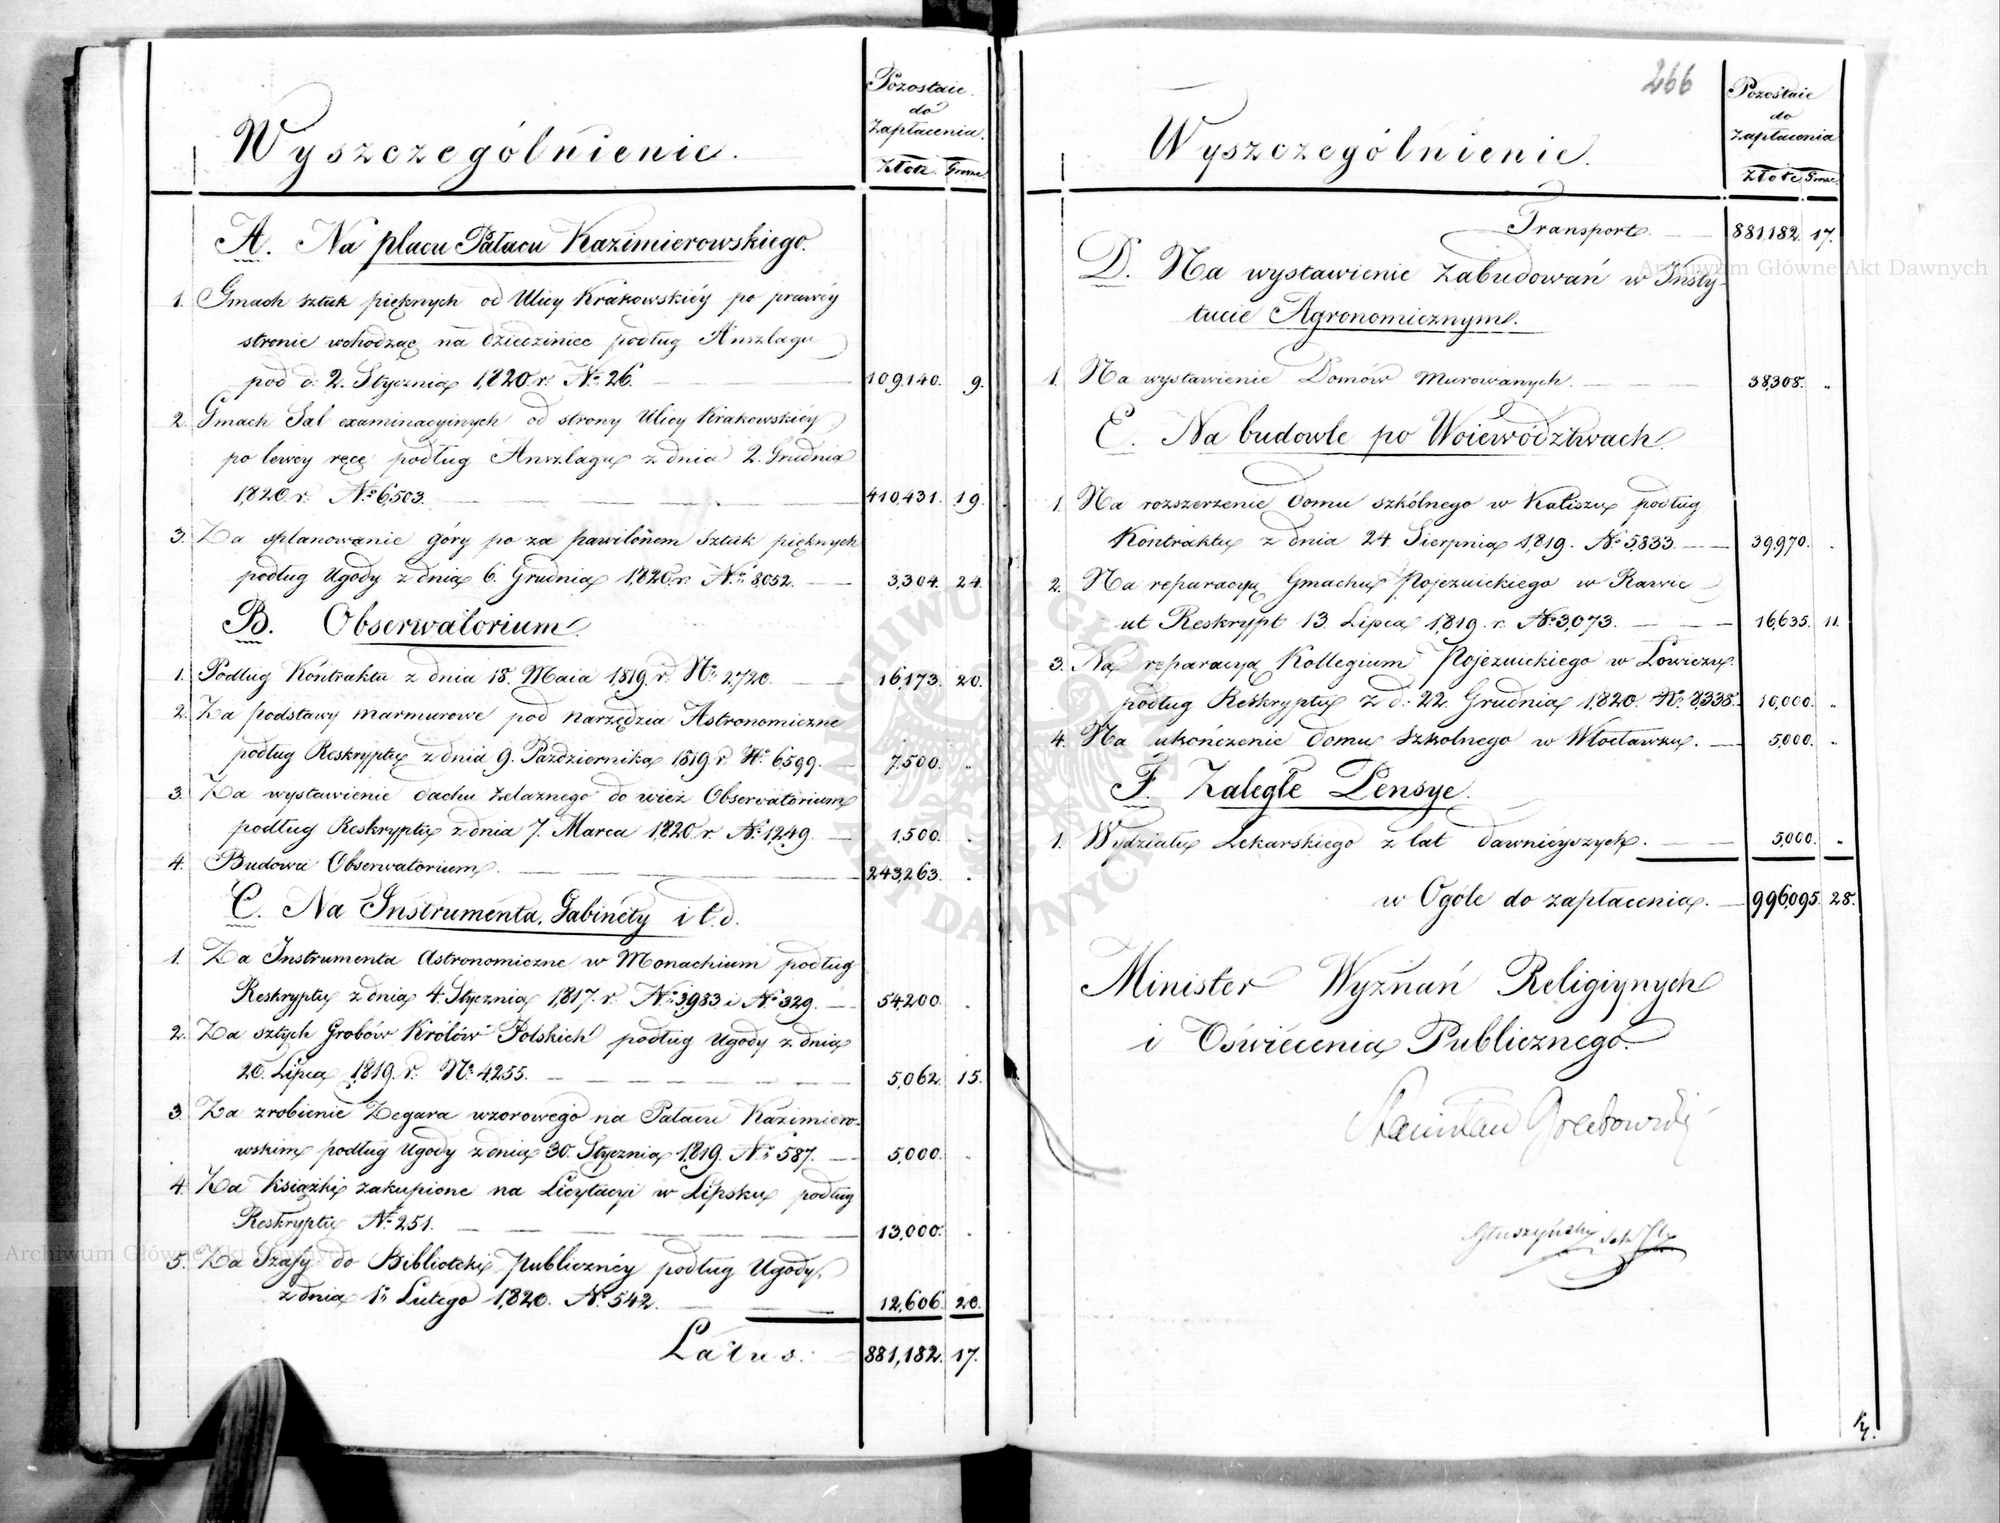 Wyszczególnienie.
Pozostaie
do
Zapłacenia.
Złote. Grosze
A. Na placu Pałacu Kazimierowskiego.
1. Gmach sztuk pięknych od Ulicy Krakowskiéy po prawéy
stronie wchodząc na dziedziniec podług Anszlagu
pod d: 2. Stycznia 1820. r. No. 26. 109,140. 9.
2. Gmach Sal examinacyinych od strony Ulicy Krakowskiéy
po lewey ręcę podług Anszlagu z dnia 2. Grudnia
1820. r. No. 6503. 410,431. 19.
3. Za splanowanie góry po za pawilonem Sztuk pięknych
podług Ugody z dnia 6. Grudnia 1820. r. No. 8052. 3,304. 24.
B. Obserwatorium.
1. Podług Kontraktu z dnia 18. Maia 1819. r. No. 2720. 16,173. 20.
2. Za podstawy marmurowe pod narzędzia Astronomiczne
podług Reskryptu z dnia 9. Października 1819. r. No. 6599. 7,500. „
3. Za wystawienie dachu żelaznego do wież Obserwatorium
podług Reskryptu z dnia 7. Marca 1820. r. No. 1249. 1,500. „
4. Budowa Obserwatorium. 243,263. „
C. Na Instrumenta, Gabinety i t. d.
1. Za Instrumenta Astronomiczne w Monachium podług
Reskryptu z dnia 4. Stycznia 1817. r. No. 3983 i No. 329. 54,200. „
2. Za sztych Grobów Królów Polskich podług Ugody z dnia
20. Lipca 1819. r. No. 4255. 5,062. 15.
3. Za zrobienie Zegara wzorowego na Pałacu Kazimiero-
wskim podług Ugody z dnia 30. Stycznia 1819. No. 587. 5,000. „
4. Za książki zakupione na Licytacyi w Lipsku podług
Reskryptu No. 251. 13,000. „
5. Za Szafy do Biblioteki publicznéy podług Ugody
z dnia 1. Lutego 1820. No. 542. 12,606. 20.
Latus. 881,182. 17.
266
Wyszczególnienie.
Pozostaie
do
Zapłacenia
Złote Grosze
Transport. 881,182. 17.
D. Na wystawienie Zabudowań w Insty-
tucie Agronomicznym.
1. Na wystawienie Domów murowanych. 38,308. „
E. Na budowle po Woiewództwach.
1. Na rozszerzenie Domu szkólnego w Kaliszu podług
Kontraktu z dnia 24. Sierpnia 1819. No. 5833. 39,970. „
2. Na reparacyą Gmachu Pojezuickiego w Rawie
ut Reskrypt 13 Lipca 1819. r. No. 3,073. 16,635. 11.
3. Na reparacyą Kollegium Pojezuickiego w Łowiczu
podług Reskryptu z d: 22. Grudnia 1820. No. 8,338. 10,000. „
4. Na ukończenie domu szkolnego w Włocławku. 5,000. „
F. Zaległe Pensye.
1. Wydziału Lekarskiego z lat dawniéyszych. 5,000. „
w Ogóle do zapłacenia. 996,095. 28.
Minister Wyznań Religiynych
i Oświecenia Publicznego.
Stanisław Grabowski
Głuszyński
Archiwum Główne Akt Dawnych
Archiwum Główne Akt Dawnych
ARCHIWUM GŁÓWNE AKT DAWNYCH